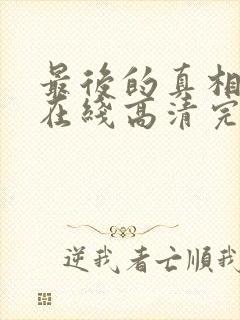 最後的真相
在綫高清完
逆我者亡順我